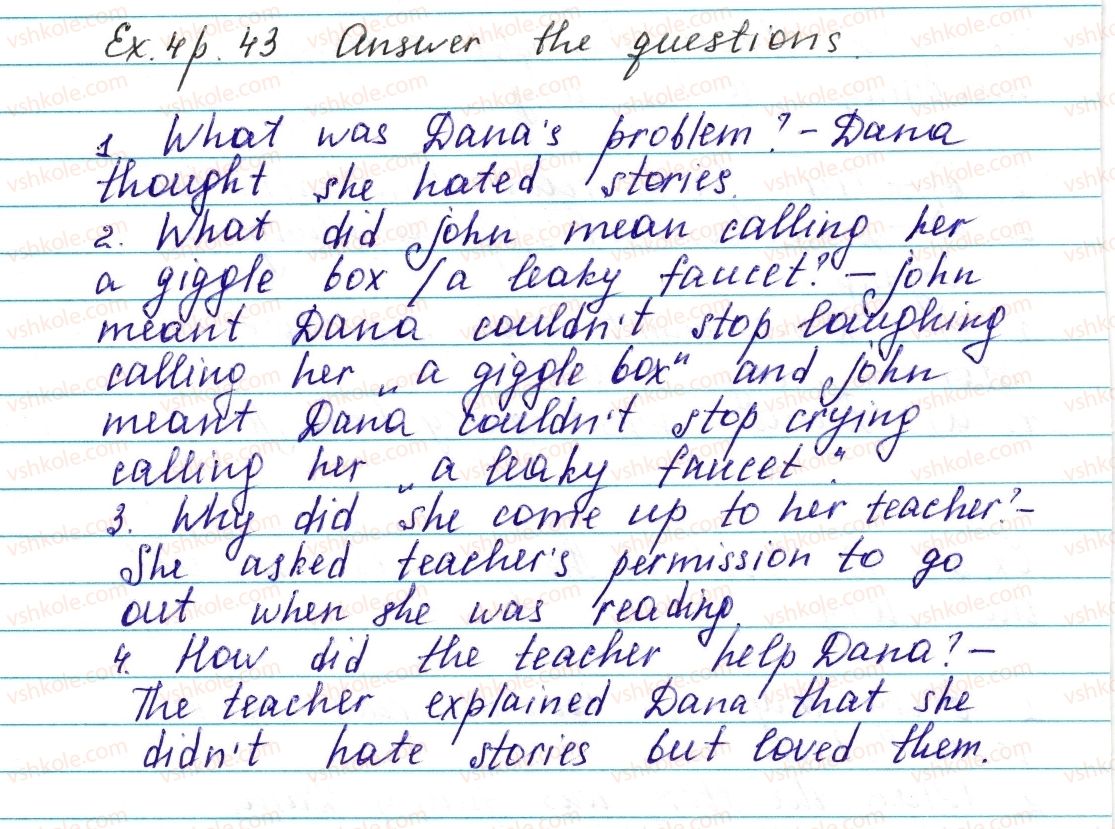 Ex. 4 p. 43 Answer the questions.
1. What was Dana's problem? – Dana
thought she hated stories.
2. What did John mean calling her
a giggle box / a leaky faucet? – John
meant Dana couldn't stop laughing
calling her „a giggle box" and John
meant Dana couldn't stop crying
calling her „a leaky faucet".
3. Why did she come up to her teacher? –
She asked teacher's permission to go
out when she was reading.
4. How did the teacher help Dana? –
The teacher explained Dana that she
didn't hate stories but loved them.
vshkole.com